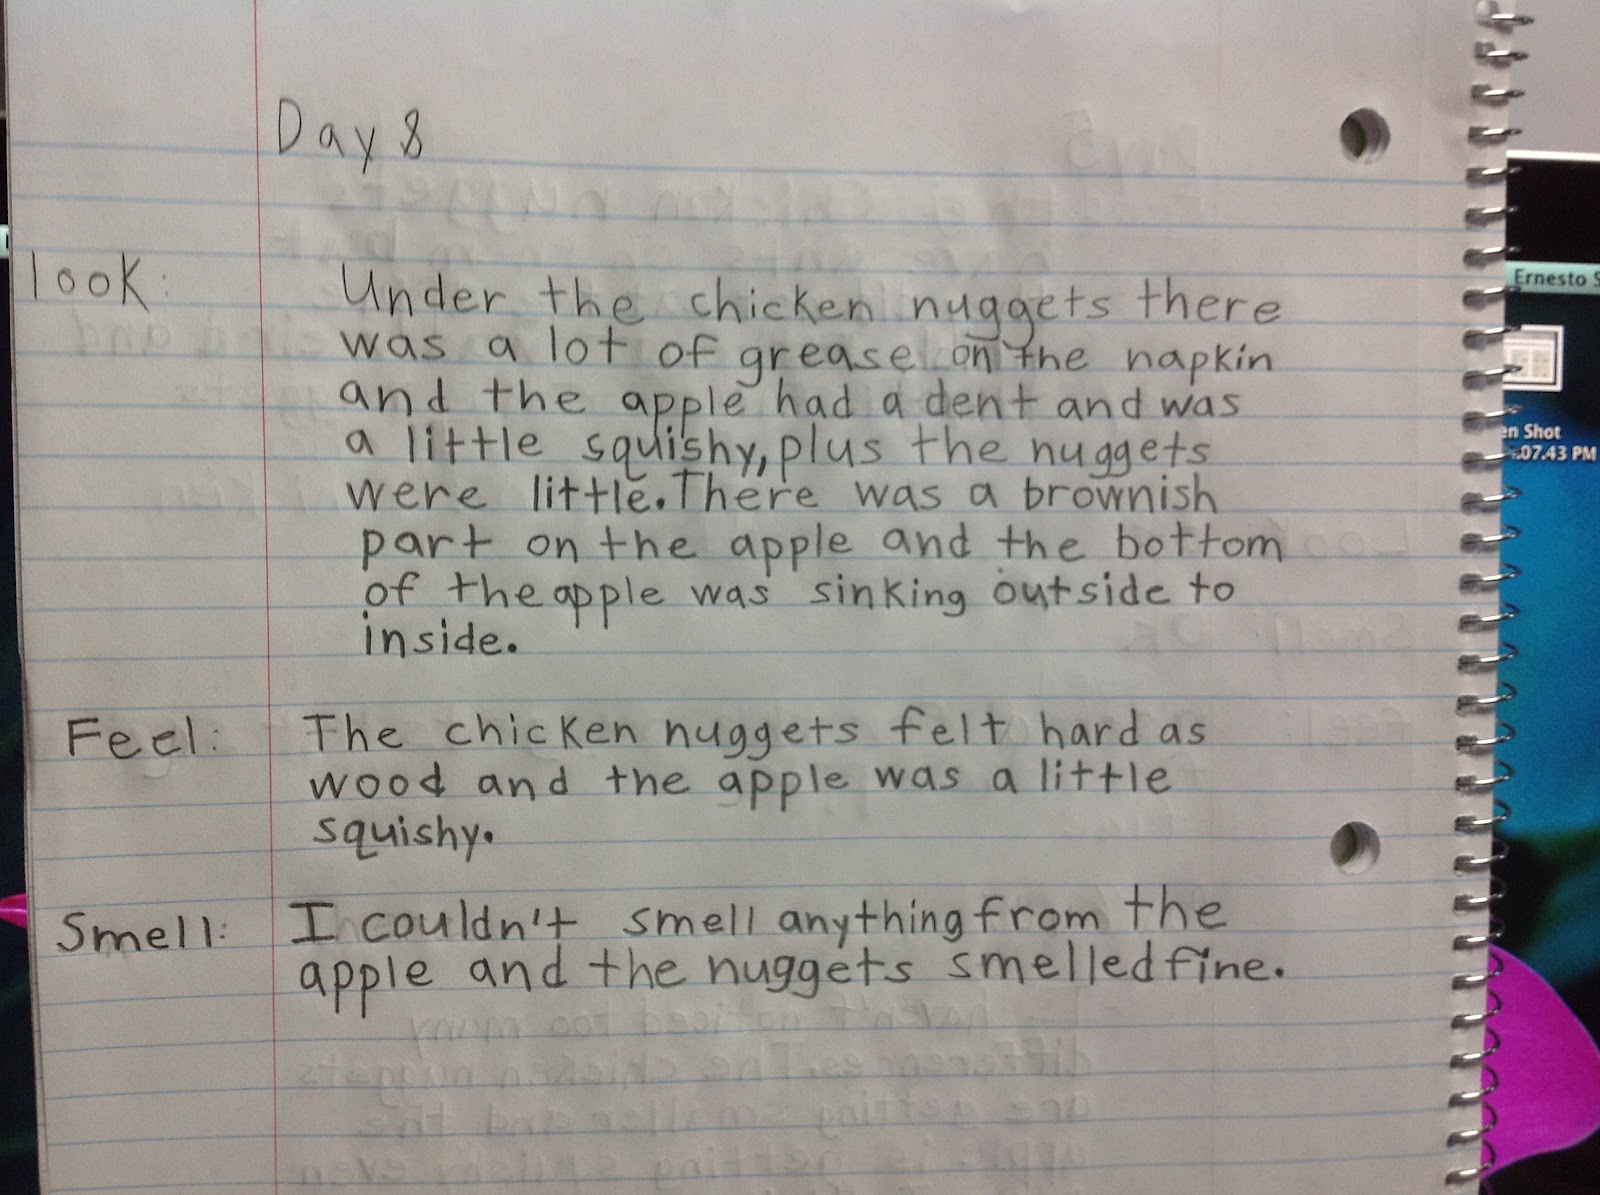 Day 8
look: Under the chicken nuggets there
was a lot of grease on the napkin
and the apple had a dent and was
a little squishy, plus the nuggets
were little. There was a brownish
part on the apple and the bottom
of the apple was sinking outside to
inside.
Feel: The chicken nuggets felt hard as
wood and the apple was a little
squishy.
Smell: I couldn't smell anything from the
apple and the nuggets smelled fine.
Ernesto S
en Shot
.07.43 PM
haven't noticed too many
differences. The chicken nuggets
are getting smaller and the
apple is getting squishy even